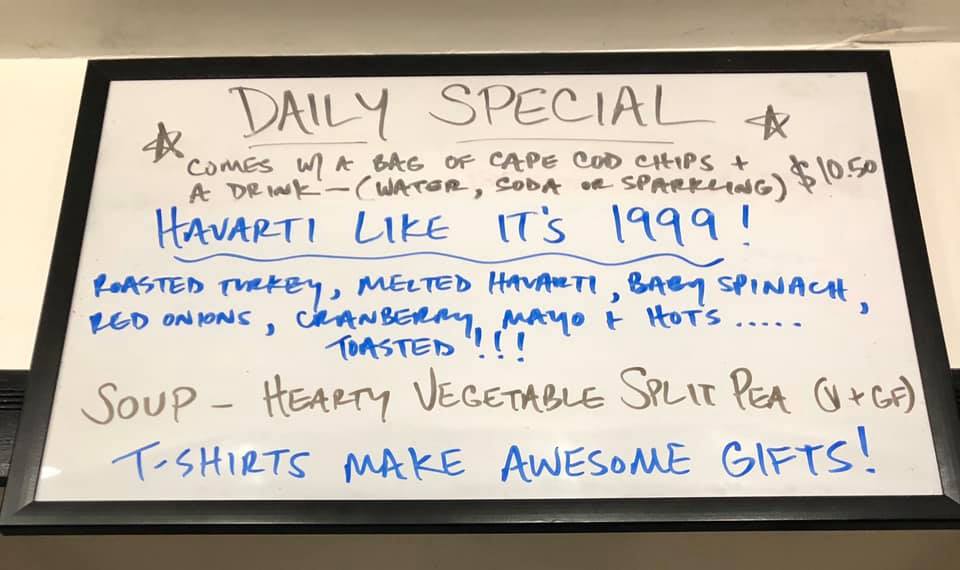 DAILY SPECIAL
COMES W/ A BAG OF CAPE COD CHIPS +
A DRINK - (WATER, SODA OR SPARKLING) $10.50
HAVARTI LIKE IT'S 1999!
ROASTED TURKEY, MELTED HAVARTI, BABY SPINACH,
RED ONIONS, CRANBERRY, MAYO + HOTS.....
TOASTED!!!
SOUP - HEARTY VEGETABLE SPLIT PEA (V + GF)
T-SHIRTS MAKE AWESOME GIFTS!